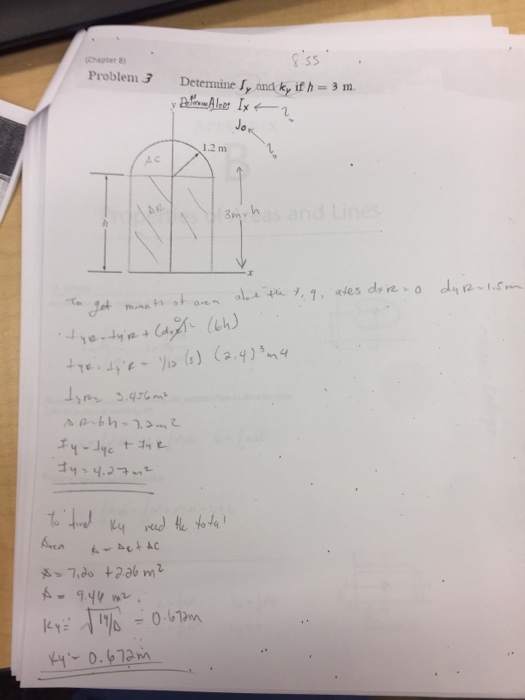 8.55
(Chapter 8)
Problem 3 Determine Iy and ky if h = 3 m.
y Determine Also: Ix ← ?
Jo ← ?
1.2 m
AC
B
AR
h
3m = h
Properties of Areas and Lines
x
To get moments of area about the x, y, axes dxR = 0 dyR = 1.5m
IyR = Iy'R + (dxR)² (bh)
IyR = Iy'R = 1/12 (3) (2.4)³ m4
IyR = 3.456 m²
AR = bh = 7.2 m2
Iy = Iyc + IyR
Iy = 4.27 m²
To find Ky need the total
Area A = AR + AC
A = 7.20 + 2.26 m²
A = 9.46 m².
Ky = √Iy/A = 0.672m
Ky = 0.672m